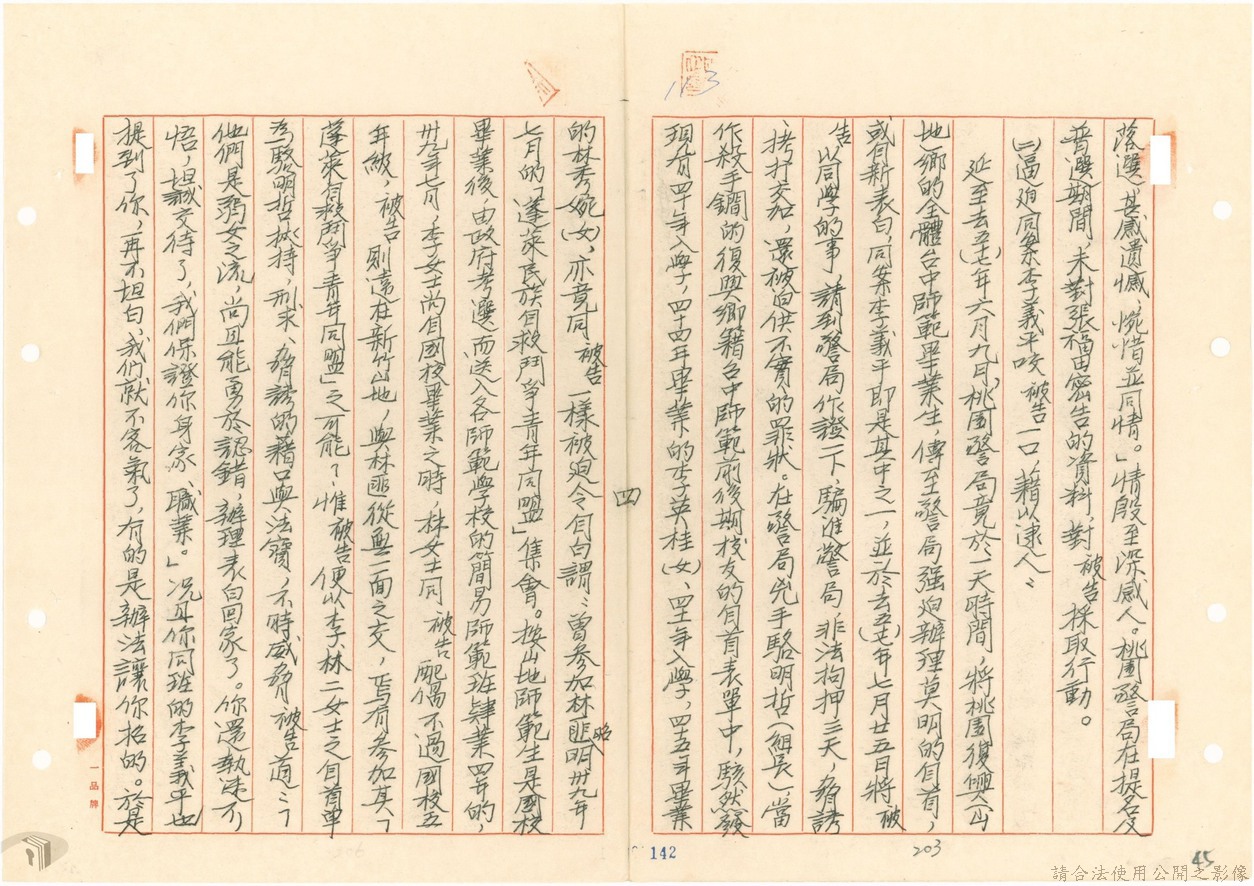 落選，甚感遺憾、惋惜並同情。」情殷至深感人。桃園警局在提名及
普選期間，未對張福田密告的資料，對被告採取行動。
㈡逼迫同案李義平咬被告一口，藉以逮人：
延至去(五十七)年六月九月，桃園警局竟於一天時間，將桃園復興山
地鄉的全體台中師範畢業生，傳至警局强迫辦理莫明的自首，
或自新表白，同案李義平即是其中之一，並於去(五七)年七月廿五日將被
告以同學的事，請到警局作證一下，騙進警局非法拘押三天，脅誘
拷打交加，還被迫供不實的罪狀。在警局兇手駱明哲(組長)，當
作殺手鐧的復興鄉籍台中師範前後期校友的自首表單中，駭然發
現有四十年入學，四十四年畢業的李英桂(女)、四十一年入學，四十五年畢業
的林秀婉(女)，亦竟同被告一樣被迫令自白謂：曾參加林匪昭明卅九年
七月的「蓬萊民族自救鬥爭青年同盟」集會。按山地師範生是國校
畢業後，由政府考選，而送入各師範學校的簡易師範班肄業四年的，
卅九年七月，李女士尚自國校畢業之時，林女士同被告配偶不過國校五
年級，被告則遠在新竹山地，與林匪從無一面之交，焉有參加其「
蓬萊自救鬥爭青年同盟」之可能？惟被告便以李、林二女士之自首單
為駱明哲挾持，刑求、脅誘的藉口與法寶，不時威脅被告道：「
他們是弱女之流，尚且能勇於認錯，辦理表白回家了。你還執迷不
悟，坦誠交待了，我們保證你身家、職業。」況且你同班的李義平也
提到了你，再不坦白，我們就不客氣了，有的是辦法讓你招的。於是
四
113
142
203
45
一品牌
請合法使用公開之影像